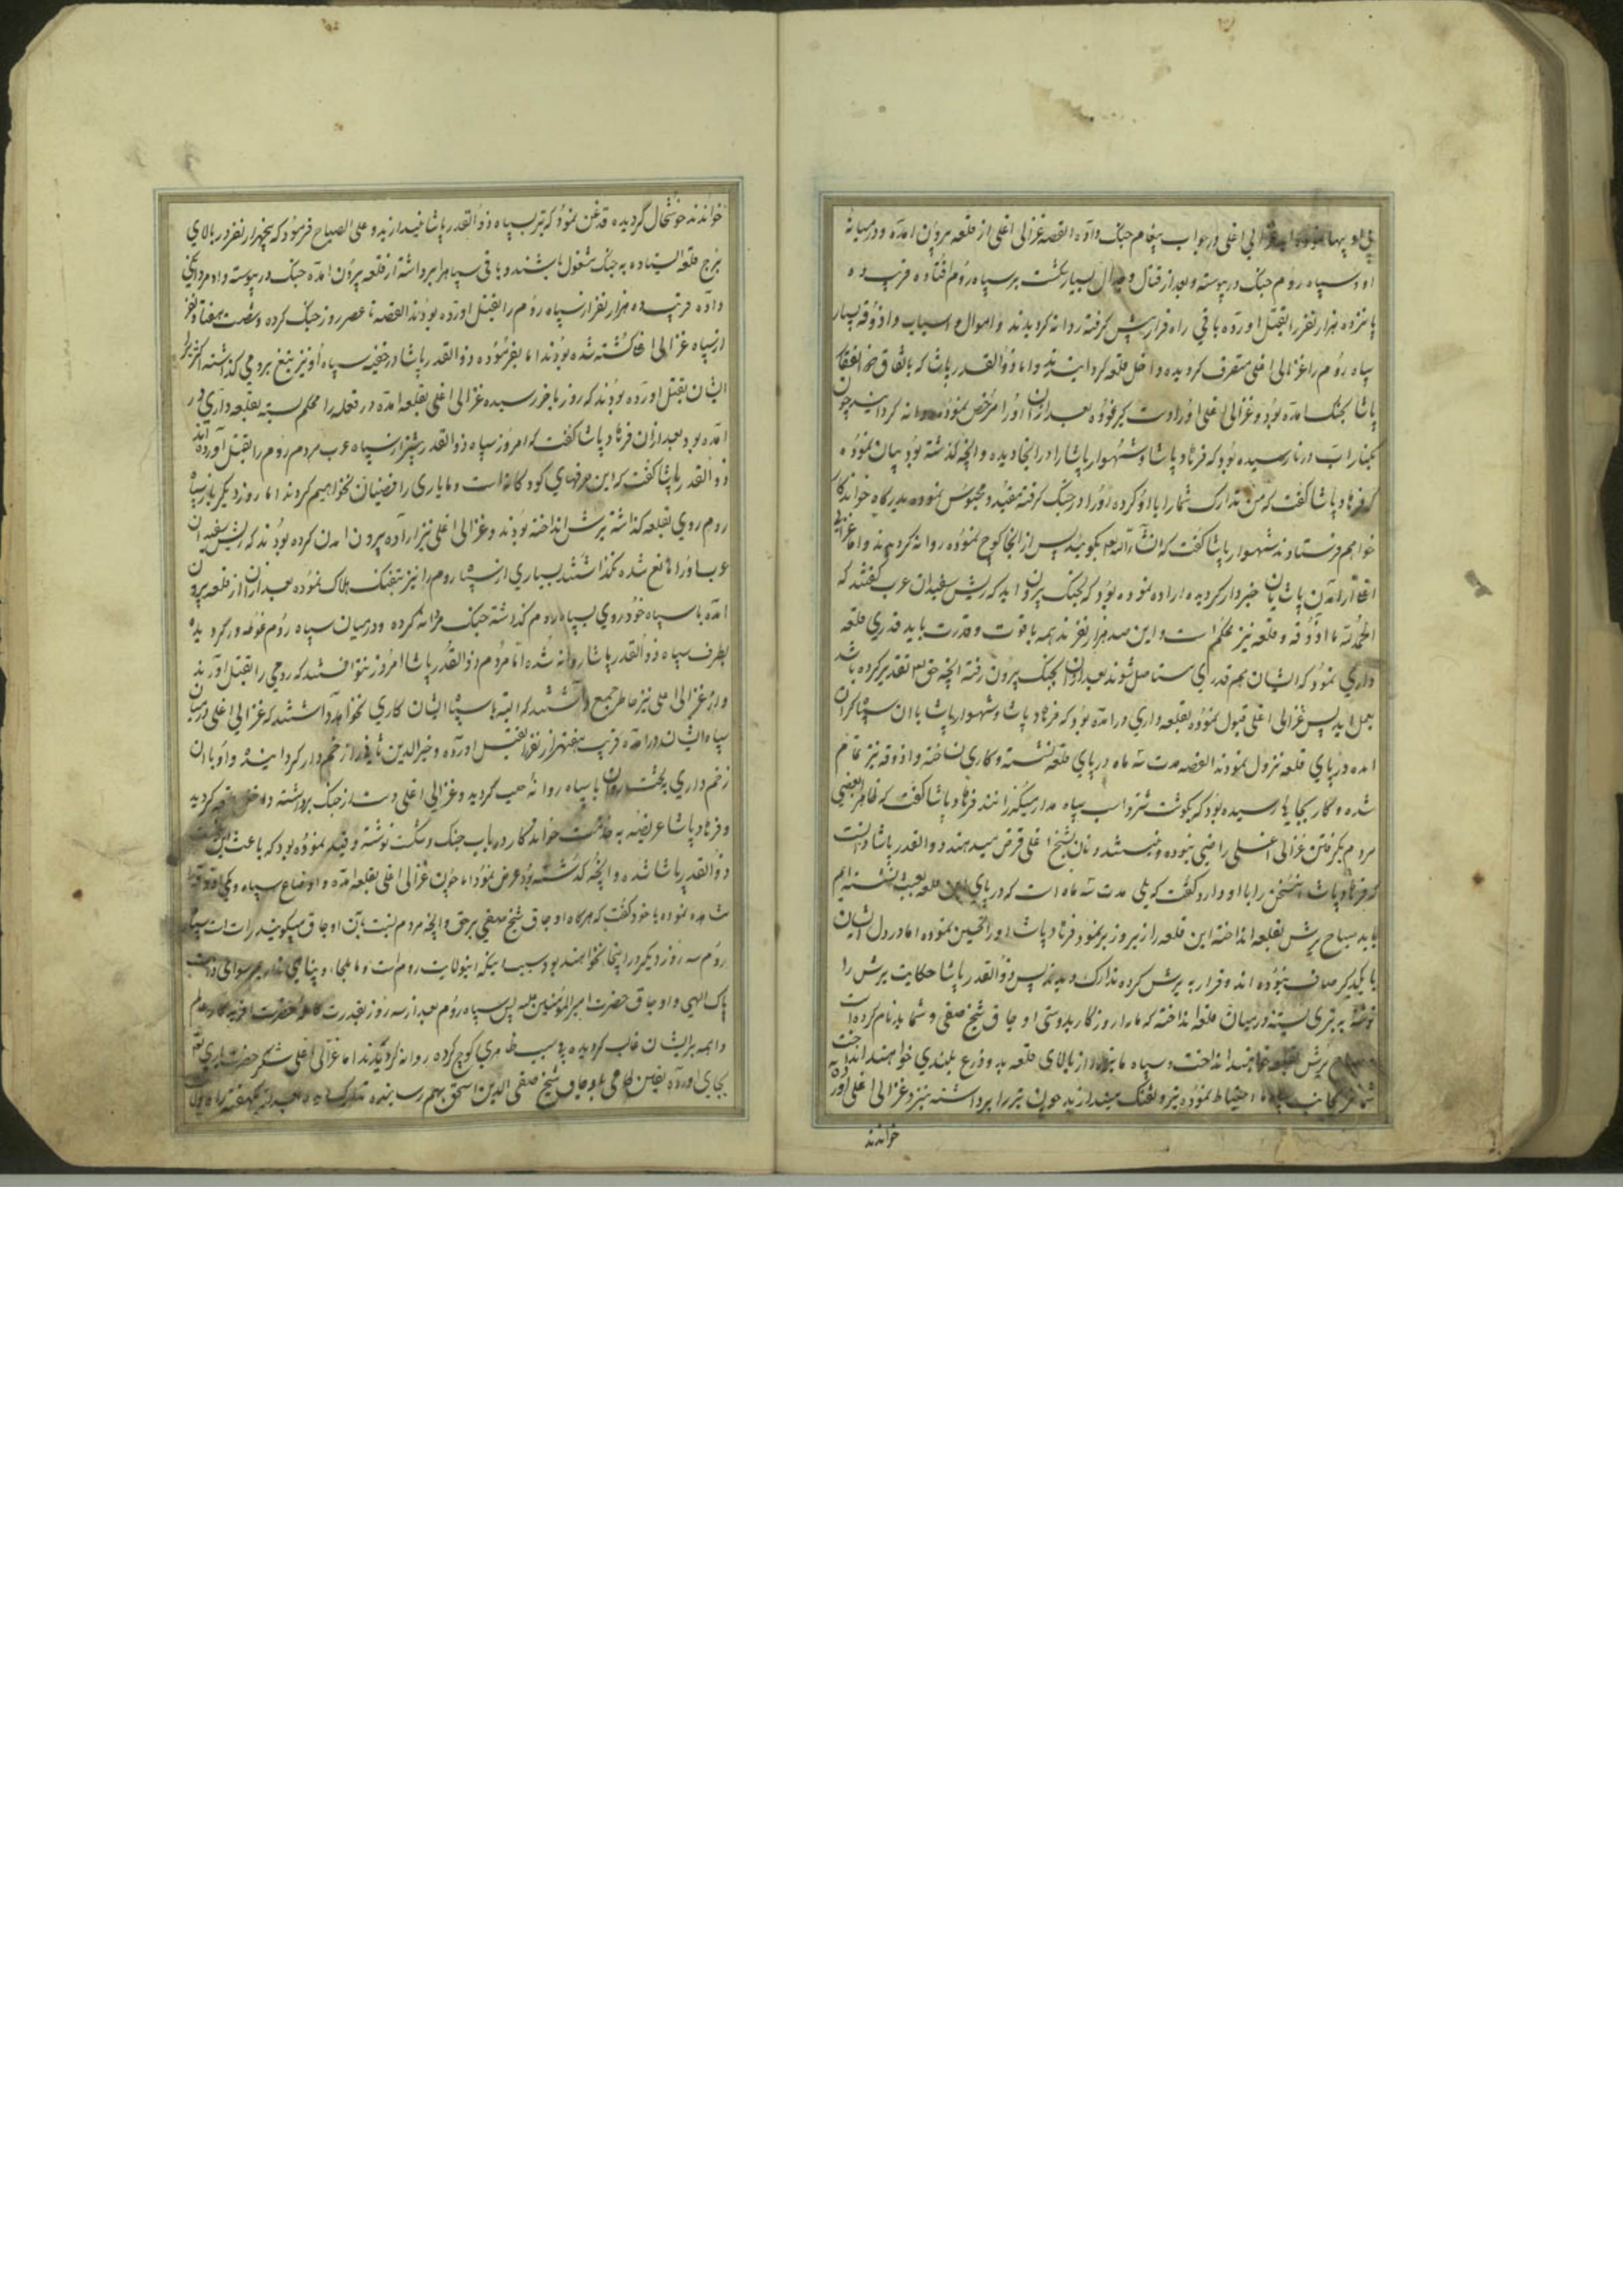 غزالی اغلی در جواب پیغام جنک داده القصه غزالی اغلی از قلعه بیرون امده و در میانهٔ
او و سپاه روم جنک در پیوسته و بعد از قتال و جدال بسیار شکست بر سپاه روم افتاده قریب ده
پانزده هزار نفر را بقتل اورده باقی راه فرار پیش کرفته روانه کردیدند و اموال و اسباب و اذوقه بسیار
سپاه روم را غزالی اغلی متصرف کردیده داخل قلعه کردانیدند و اما ذوالقدر پاشا که باتفاق
پاشا بجنک امده بود و غزالی اغلی او را دست کیر نموده بعد از ان او را مرخص نموده روانه کردانید چون
رسیده بود که فرهاد پاشا و شهسوار پاشا را در انجا دیده و انچه کذشته بود بیان نموده
که فرهاد پاشا کفت که من تدارک شما را با او کرده او را در جنک کرفته مقید و محبوس نموده بدرکاه خواندکار
خواهم فرستاد و شهسوار پاشا کفت که انشاءالله بکوئید پس از انجا کوچ نموده روانه کردیدند و اما غزالی
اغلی از امدن پاشایان خبردار کردیده اراده نموده بود که بجنک بیرون اید که ریش سفیدان عرب کفتند که
الحمدلله ما اذوقه و قلعه نیز محکم است و این صد هزار نفرند همه با قوت و قدرت باید قدری قلعه
داری نمود که ایشان هم قدری مستاصل شوند بعد از ان بجنک بیرون رفته انچه حق تعالی تقدیر کرده باشد
بعمل اید پس غزالی اغلی قبول نموده بقلعه داری در امده بود که فرهاد پاشا و شهسوار پاشا با ان سپاه کران
امده در پای قلعه نزول نمودند القصه مدت سه ماه در پای قلعه نشسته و کاری نساخته و اذوقه نیز تمام
شده و کار بجایی رسیده بود که بکوشت شتر و اسب سپاه مدار میکذرانند فرهاد پاشا کفت که ظاهرا بعضی
مردم بکرفتن غزالی اغلی راضی نبوده و نان بشیخ اغلی قرض میدهند ذوالقدر پاشا دانست
که فرهاد پاشا این سخن را با او دارد کفت که بلی مدت سه ماه است که در پای این قلعه بعبث نشسته ایم
باید صباح یرش بقلعه انداخته این قلعه را زیر و زبر نمود فرهاد پاشا او را تحسین نموده اما در دل ایشان
با یکدیکر صاف نبوده اند و قرار به یرش کرده تدارک دیدند پس ذوالقدر پاشا حکایت یرش را
نوشته بر تیری بسته در میان قلعه انداخته که ما در روزکار بدوستی اوجاق شیخ صفی و شما بدنام کرده است
صباح یرش بقلعه خواهند انداخت و سپاه ما نیز از بالای قلعه بدو ذرع بلندی خواهند انداخت
شما نیز احتیاط نموده تیر و تفنک میندازید چون تیر را برداشته نزد غزالی اغلی اورده
خواندند
خواندند خوشحال کردیده قدغن نمود که تیر بسپاه ذوالقدر پاشا نیندازید و علی الصباح فرمود که پنجهزار نفر در بالای
برج قلعه ایستاده به جنک مشغول باشند و باقی سپاه را برداشته از قلعه بیرون امده جنک در پیوسته داد مردانکی
داده قریب ده هزار نفر از سپاه روم را بقتل اورده بودند القصه تا عصر روز جنک کرده و شصت هفتاد نفر
از سپاه غزالی اغلی کشته شده بودند اما بفرموده ذوالقدر پاشا در خفیه سپاه او نیز تیغ برومی کذاشته اکثر را
ایشان بقتل اورده بودند که روز باخر رسیده غزالی اغلی بقلعه امده در قلعه را محکم بسته بقلعه داری در
امده بود بعد از ان فرهاد پاشا کفت که امروز سپاه ذوالقدر بیشتر از سپاه عرب مردم روم را بقتل اورده اند
ذوالقدر پاشا کفت که این حرفهای کودکانه است و ما یاری رافضیان نخواهیم کرد اما روز دیکر باز سپاه
روم روی بقلعه کذاشته یرش انداخته بودند و غزالی اغلی نیز اراده بیرون امدن کرده بودند که ریش سفیدان
عرب او را مانع شده نکذاشتند بسیاری از سپاه روم را نیز بتفنک هلاک نموده بعد از ان از قلعه بیرون
امده با سپاه خود روی بسپاه روم کذاشته جنک مردانه کرده و در میان سپاه روم غوطه ور کردیده
بطرف سپاه ذوالقدر پاشا روانه شده اما مردم ذوالقدر پاشا امروز نتوانستند که رومی را بقتل اورند
و از غزالی اغلی نیز خاطر جمع داشتند که البته با سپاه ایشان کاری نخواهد داشتند که غزالی اغلی در میان
سپاه ایشان در امده قریب بهفتهزار نفر را بقتل اورده و خیرالدین پاشا را زخم دار کردانیده و او با ان
زخم داری بتخت روان با سپاه روانهٔ حلب کردید و غزالی اغلی دست از جنک برداشته داخل قلعه کردید
و فرهاد پاشا عریضه به خدمت خواندکار در باب جنک و شکست نوشته و قید نموده بود که باعث این شکست
ذوالقدر پاشا شده و انچه کذشته بود عرض نمود اما چون غزالی اغلی بقلعه امده و اوضاع سپاه و کمی اذوقه
مشاهده نموده با خود کفت که هرکاه اوجاق شیخ صفی بر حق و انچه مردم نسبت بان اوجاق میکویند راست است سپاه
روم سه روز دیکر در اینجا نخواهند بود سبب اینکه این ولایت روم است و ما ملجاء و پناهی نداریم سوای ذات
پاک الهی و اوجاق حضرت امیرالمؤمنین علیه پس سپاه روم بعد از سه روز بقدرت کاملهٔ حضرت افریدکار عالم
واهمه بر ایشان غالب کردیده بی سبب ظاهری کوچ کرده روانه کردیدند اما غزالی اغلی شکر حضرت باری تعالی
بجای اورده یقین کاملی باوجاق شیخ صفی الدین اسحق بهم رسانیده